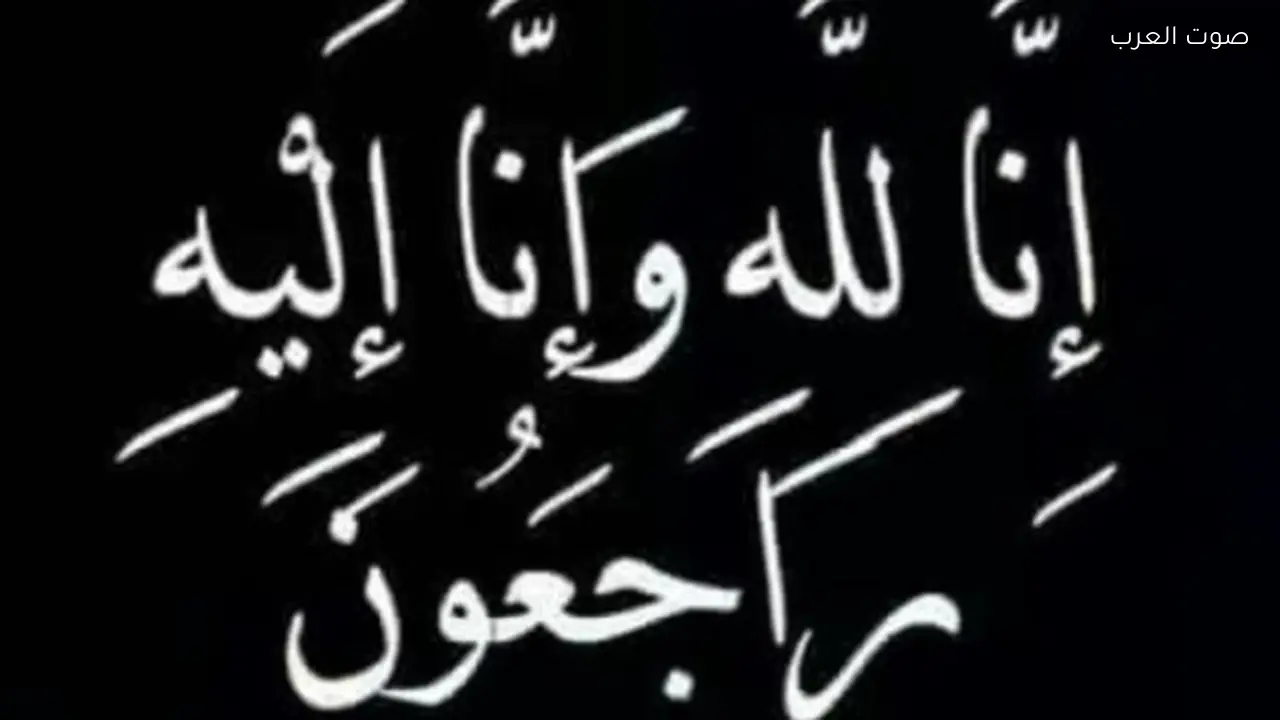 صوت العرب
إِنَّا لِلَّهِ وَإِنَّا إِلَيْهِ
رَاجَعُونَ